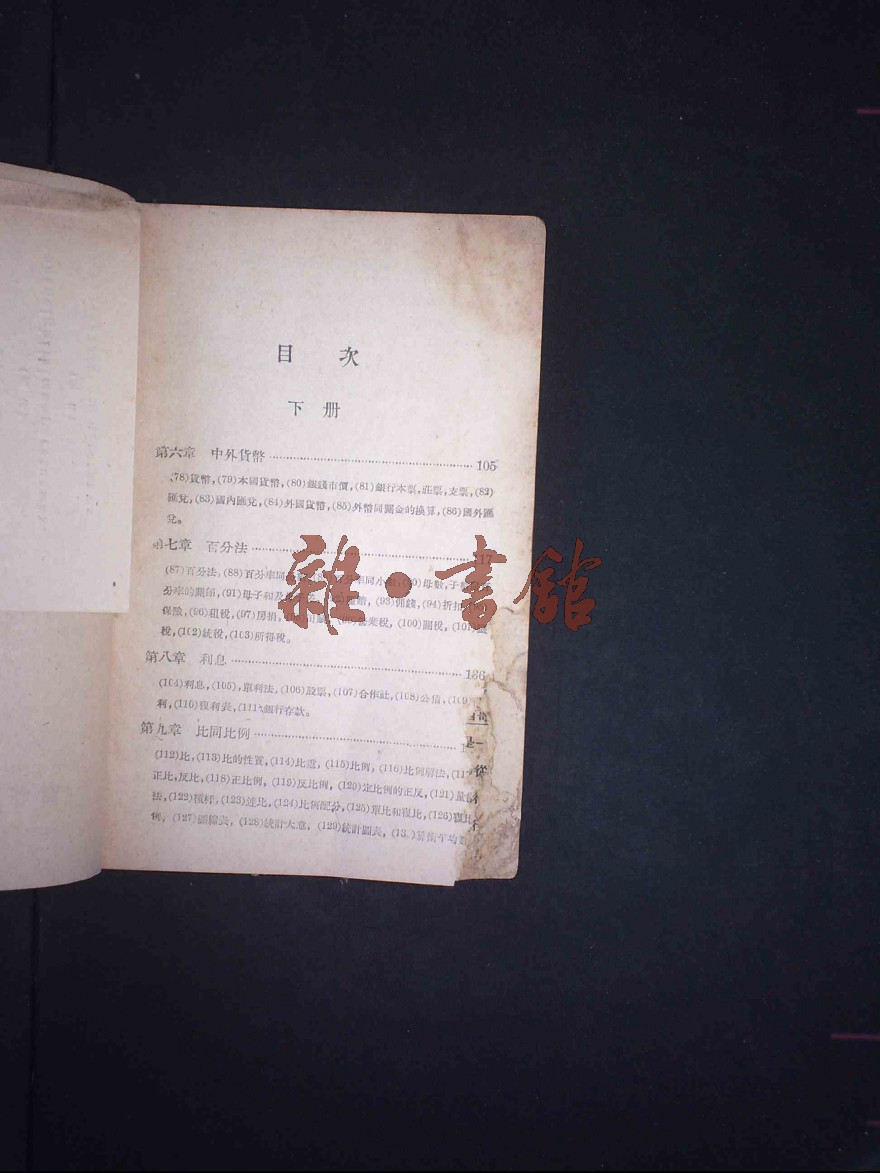 目 次
下 册
第六章 中外貨幣 105
(78)貨幣,(79)本國貨幣,(80)銀錢市價,(81)銀行本票,莊票,支票,(82)
匯兌,(83)國內匯兌,(84)外國貨幣,(85)外幣同關金的換算,(86)國外匯
兌。
第七章 百分法 117
(87)百分法,(88)百分率同 率同小數,(90)母數,子
分率的關係,(91)母子和及 (93)佣錢,(94)折扣
保險,(96)租稅,(97)房捐, 營業稅,(100)關稅,(101)
稅,(102)統稅,(103)所得稅。
第八章 利息 136
(104)利息,(105),單利法,(106)股票,(107)合作社,(108)公債,(109)
利,(110)複利表,(111)銀行存款。
第九章 比同比例
(112)比,(113)比的性質,(114)比重,(115)比例,(116)比例解法,
正比,反比,(118)正比例,(119)反比例,(120)定比例的正反,(121)
法,(122)槓杆,(123)連比,(124)比例配分,(125)單比和複比,(126)複比
例。(127) 表,(128)統計大意,(129)統計圖表, 算術平均
雜·書館